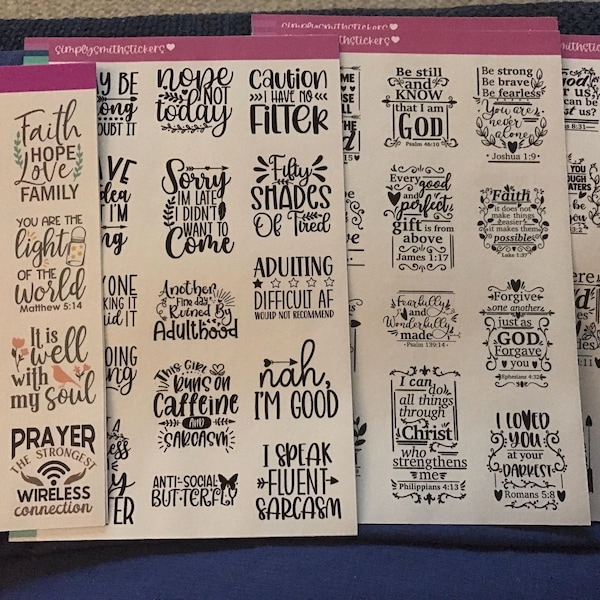 simplysmithstickers
simplysmithstickers
simplysmithstickers
Faith
HOPE
Love
FAMILY
YOU ARE THE
light
OF THE
World
Matthew 5:14
It is
well
with
my soul
PRAYER
THE STRONGEST
WIRELESS
connection
nope
not
today
Sorry
IM LATE
I DIDN'T
WANT TO
Come
Another
Fine day
Ruined By
Adulthood
THIS GIRL
RUNS ON
CAFFEINE
AND
SARCASM
ANTI-SOCIAL
BUTTERFLY
CAUTION
I HAVE NO
FILTER
Fifty
SHADES
Of Tired
ADULTING
DIFFICULT AF
WOULD NOT RECOMMEND
nah,
I'M GOOD
I SPEAK
FLUENT
SARCASM
Be still
and
KNOW
that I am
GOD
Psalm 46:10
Every
good
and
perfect
gift is
from
above
James 1:17
Fearfully
and
Wonderfully
made
Psalm 139:14
I can
do
all things
through
Christ
who
strengthens
me
Philippians 4:13
Be strong
Be brave
Be fearless
You are
never
alone
Joshua 1:9
Faith
it does not
make things
easier
it makes them
possible
Luke 1:37
Forgive
one another
just as
GOD
Forgave
you
Ephesians 4:32
I LOVED
YOU
at your
DARKEST
Romans 5:8